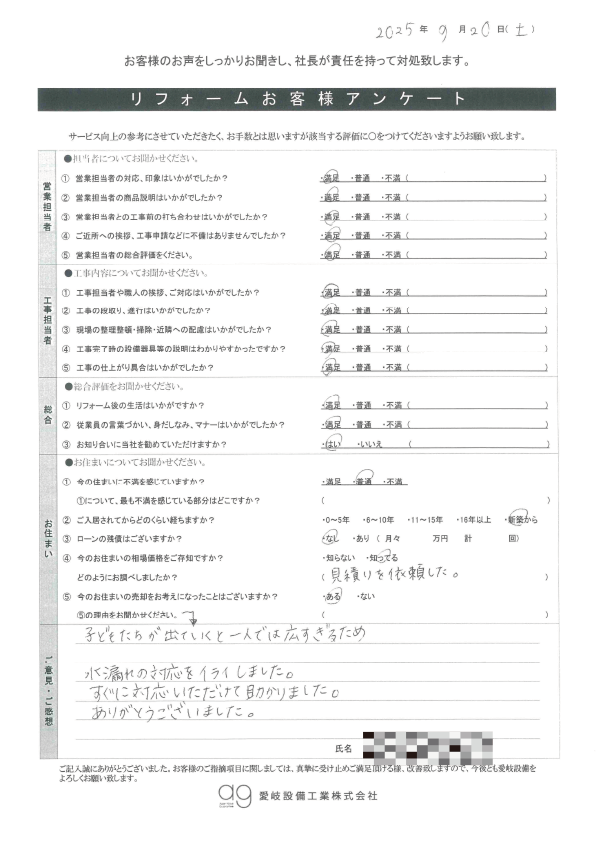 2025年 9月20日(土)
お客様のお声をしっかりお聞きし、社長が責任を持って対処致します。
リフォームお客様アンケート
サービス向上の参考にさせていただきたく、お手数とは思いますが該当する評価に○をつけてくださいますようお願い致します。
営業担当者
●担当者についてお聞かせください。
① 営業担当者の対応、印象はいかがでしたか? ・満足 ・普通 ・不満 ( )
② 営業担当者の商品説明はいかがでしたか? ・満足 ・普通 ・不満 ( )
③ 営業担当者との工事前の打ち合わせはいかがでしたか? ・満足 ・普通 ・不満 ( )
④ ご近所への挨拶、工事申請などに不備はありませんでしたか? ・満足 ・普通 ・不満 ( )
⑤ 営業担当者の総合評価をください。 ・満足 ・普通 ・不満 ( )
工事担当者
●工事内容についてお聞かせください。
① 工事担当者や職人の挨拶、ご対応はいかがでしたか? ・満足 ・普通 ・不満 ( )
② 工事の段取り、進行はいかがでしたか? ・満足 ・普通 ・不満 ( )
③ 現場の整理整頓・掃除・近隣への配慮はいかがでしたか? ・満足 ・普通 ・不満 ( )
④ 工事完了時の設備器具等の説明はわかりやすかったですか? ・満足 ・普通 ・不満 ( )
⑤ 工事の仕上がり具合はいかがでしたか? ・満足 ・普通 ・不満 ( )
総合
●総合評価をお聞かせください。
① リフォーム後の生活はいかがですか? ・満足 ・普通 ・不満 ( )
② 従業員の言葉づかい、身だしなみ、マナーはいかがでしたか? ・満足 ・普通 ・不満 ( )
③ お知り合いに当社を勧めていただけますか? ・はい ・いいえ ( )
お住まい
●お住まいについてお聞かせください。
① 今の住まいに不満を感じていますか? ・満足 ・普通 ・不満
①について、最も不満を感じている部分はどこですか? ( )
② ご入居されてからどのくらい経ちますか? ・0~5年 ・6~10年 ・11~15年 ・16年以上 ・新築から
③ ローンの残債はございますか? ・なし ・あり ( 月々 万円 計 回)
④ 今のお住まいの相場価格をご存知ですか? ・知らない ・知ってる
どのようにお調べしましたか? (見積りを依頼した。 )
⑤ 今のお住まいの売却をお考えになったことはございますか? ・ある ・ない
⑤の理由をお聞かせください。 ( )
子どもたちが出ていくと一人では広すぎるため
ご意見・ご感想
水漏れの対応をイライしました。
すぐに対応いただけて助かりました。
ありがとうございました。
氏名
ご記入誠にありがとうございました。お客様のご指摘項目に関しましては、真摯に受け止めご満足頂ける様、改善致しますので、今後とも愛岐設備を
よろしくお願い致します。
ag 愛岐設備工業株式会社